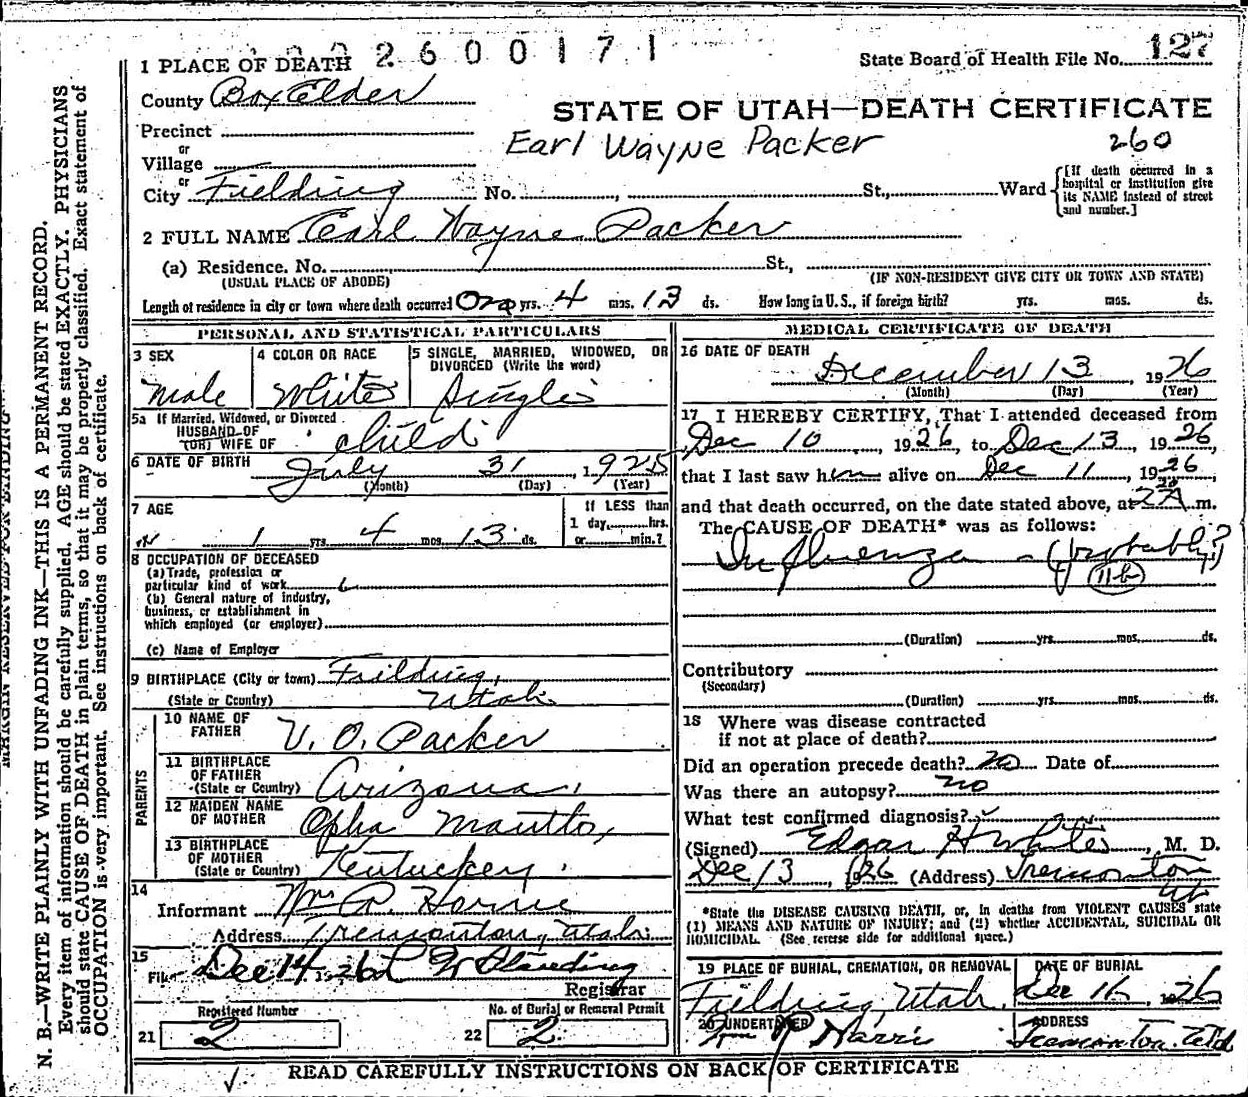 2600171
State Board of Health File No. 127
1 PLACE OF DEATH
County Box Elder
STATE OF UTAH—DEATH CERTIFICATE
Precinct
Earl Wayne Packer
260
or
Village
or
City Fielding No. , St., Ward
[If death occurred in a hospital or institution give its NAME instead of street and number.]
2 FULL NAME Earl Wayne Packer
(a) Residence. No. St.,
(USUAL PLACE OF ABODE) (IF NON-RESIDENT GIVE CITY OR TOWN AND STATE)
Length of residence in city or town where death occurred One yrs. 4 mos. 13 ds. How long in U.S., if foreign birth? yrs. mos. ds.
PERSONAL AND STATISTICAL PARTICULARS
3 SEX
Male
4 COLOR OR RACE
White
5 SINGLE, MARRIED, WIDOWED, OR DIVORCED (Write the word)
Single
5a If Married, Widowed, or Divorced
HUSBAND OF
(OR) WIFE OF child
6 DATE OF BIRTH July 31, 1925
(Month) (Day) (Year)
7 AGE
1 yrs. 4 mos. 13 ds.
If LESS than
1 day, hrs.
or min.?
8 OCCUPATION OF DECEASED
(a) Trade, profession or
particular kind of work
(b) General nature of industry,
business, or establishment in
which employed (or employer)
(c) Name of Employer
9 BIRTHPLACE (City or town) Fielding,
(State or Country) Utah
PARENTS
10 NAME OF FATHER V. O. Packer
11 BIRTHPLACE OF FATHER (State or Country) Arizona
12 MAIDEN NAME OF MOTHER Opha
13 BIRTHPLACE OF MOTHER (State or Country) Kentuckey
14
Informant
Address Tremonton, Utah
15
Dec 14, 26
Registrar
Registered Number
21 2
No. of Burial or Removal Permit
22 2
MEDICAL CERTIFICATE OF DEATH
16 DATE OF DEATH
December 13, 1926
(Month) (Day) (Year)
17 I HEREBY CERTIFY, That I attended deceased from
Dec 10, 1926, to Dec 13, 1926,
that I last saw him alive on Dec 11, 1926
and that death occurred, on the date stated above, at 2 A m.
The CAUSE OF DEATH* was as follows:
Influenza - (probably?)
11b
(Duration) yrs. mos. ds.
Contributory
(Secondary)
(Duration) yrs. mos. ds.
18 Where was disease contracted
if not at place of death?
Did an operation precede death? no Date of
Was there an autopsy? no
What test confirmed diagnosis?
(Signed) Edgar H White, M. D.
Dec 13, 1926 (Address) Tremonton
Ut
*State the DISEASE CAUSING DEATH, or, in deaths from VIOLENT CAUSES state
(1) MEANS AND NATURE OF INJURY; and (2) whether ACCIDENTAL, SUICIDAL OR
HOMICIDAL. (See reverse side for additional space.)
19 PLACE OF BURIAL, CREMATION, OR REMOVAL
Fielding, Utah
DATE OF BURIAL
Dec 16, 1926
20 UNDERTAKER
Harris
ADDRESS
Tremonton, Utah
READ CAREFULLY INSTRUCTIONS ON BACK OF CERTIFICATE
MARGIN RESERVED FOR BINDING
N. B.—WRITE PLAINLY WITH UNFADING INK—THIS IS A PERMANENT RECORD.
Every item of information should be carefully supplied. AGE should be stated EXACTLY. PHYSICIANS
should state CAUSE OF DEATH in plain terms, so that it may be properly classified. Exact statement of
OCCUPATION is very important. See instructions on back of certificate.